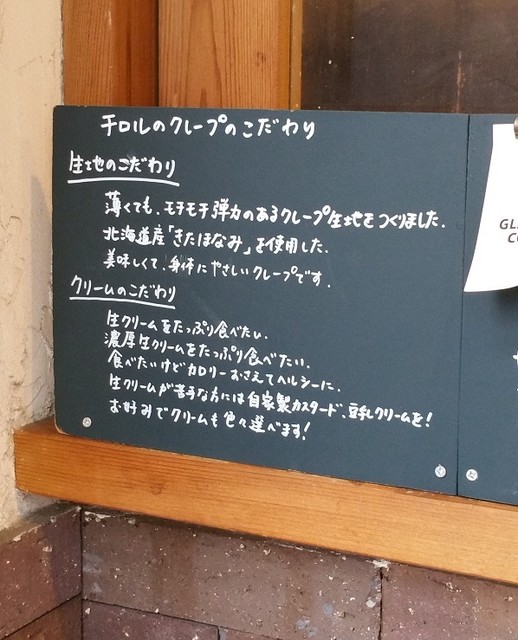 チロルのクレープのこだわり
生地のこだわり
薄くても、モチモチ弾力のあるクレープ生地をつくりました。
北海道産「きたほなみ」を使用した、
美味しくて、身体にやさしいクレープです。
クリームのこだわり
生クリームをたっぷり食べたい。
濃厚生クリームをたっぷり食べたい。
食べたいけどカロリーおさえてヘルシーに。
生クリームが苦手な方には自家製カスタード、豆乳クリームを！
お好みでクリームも色々選べます！